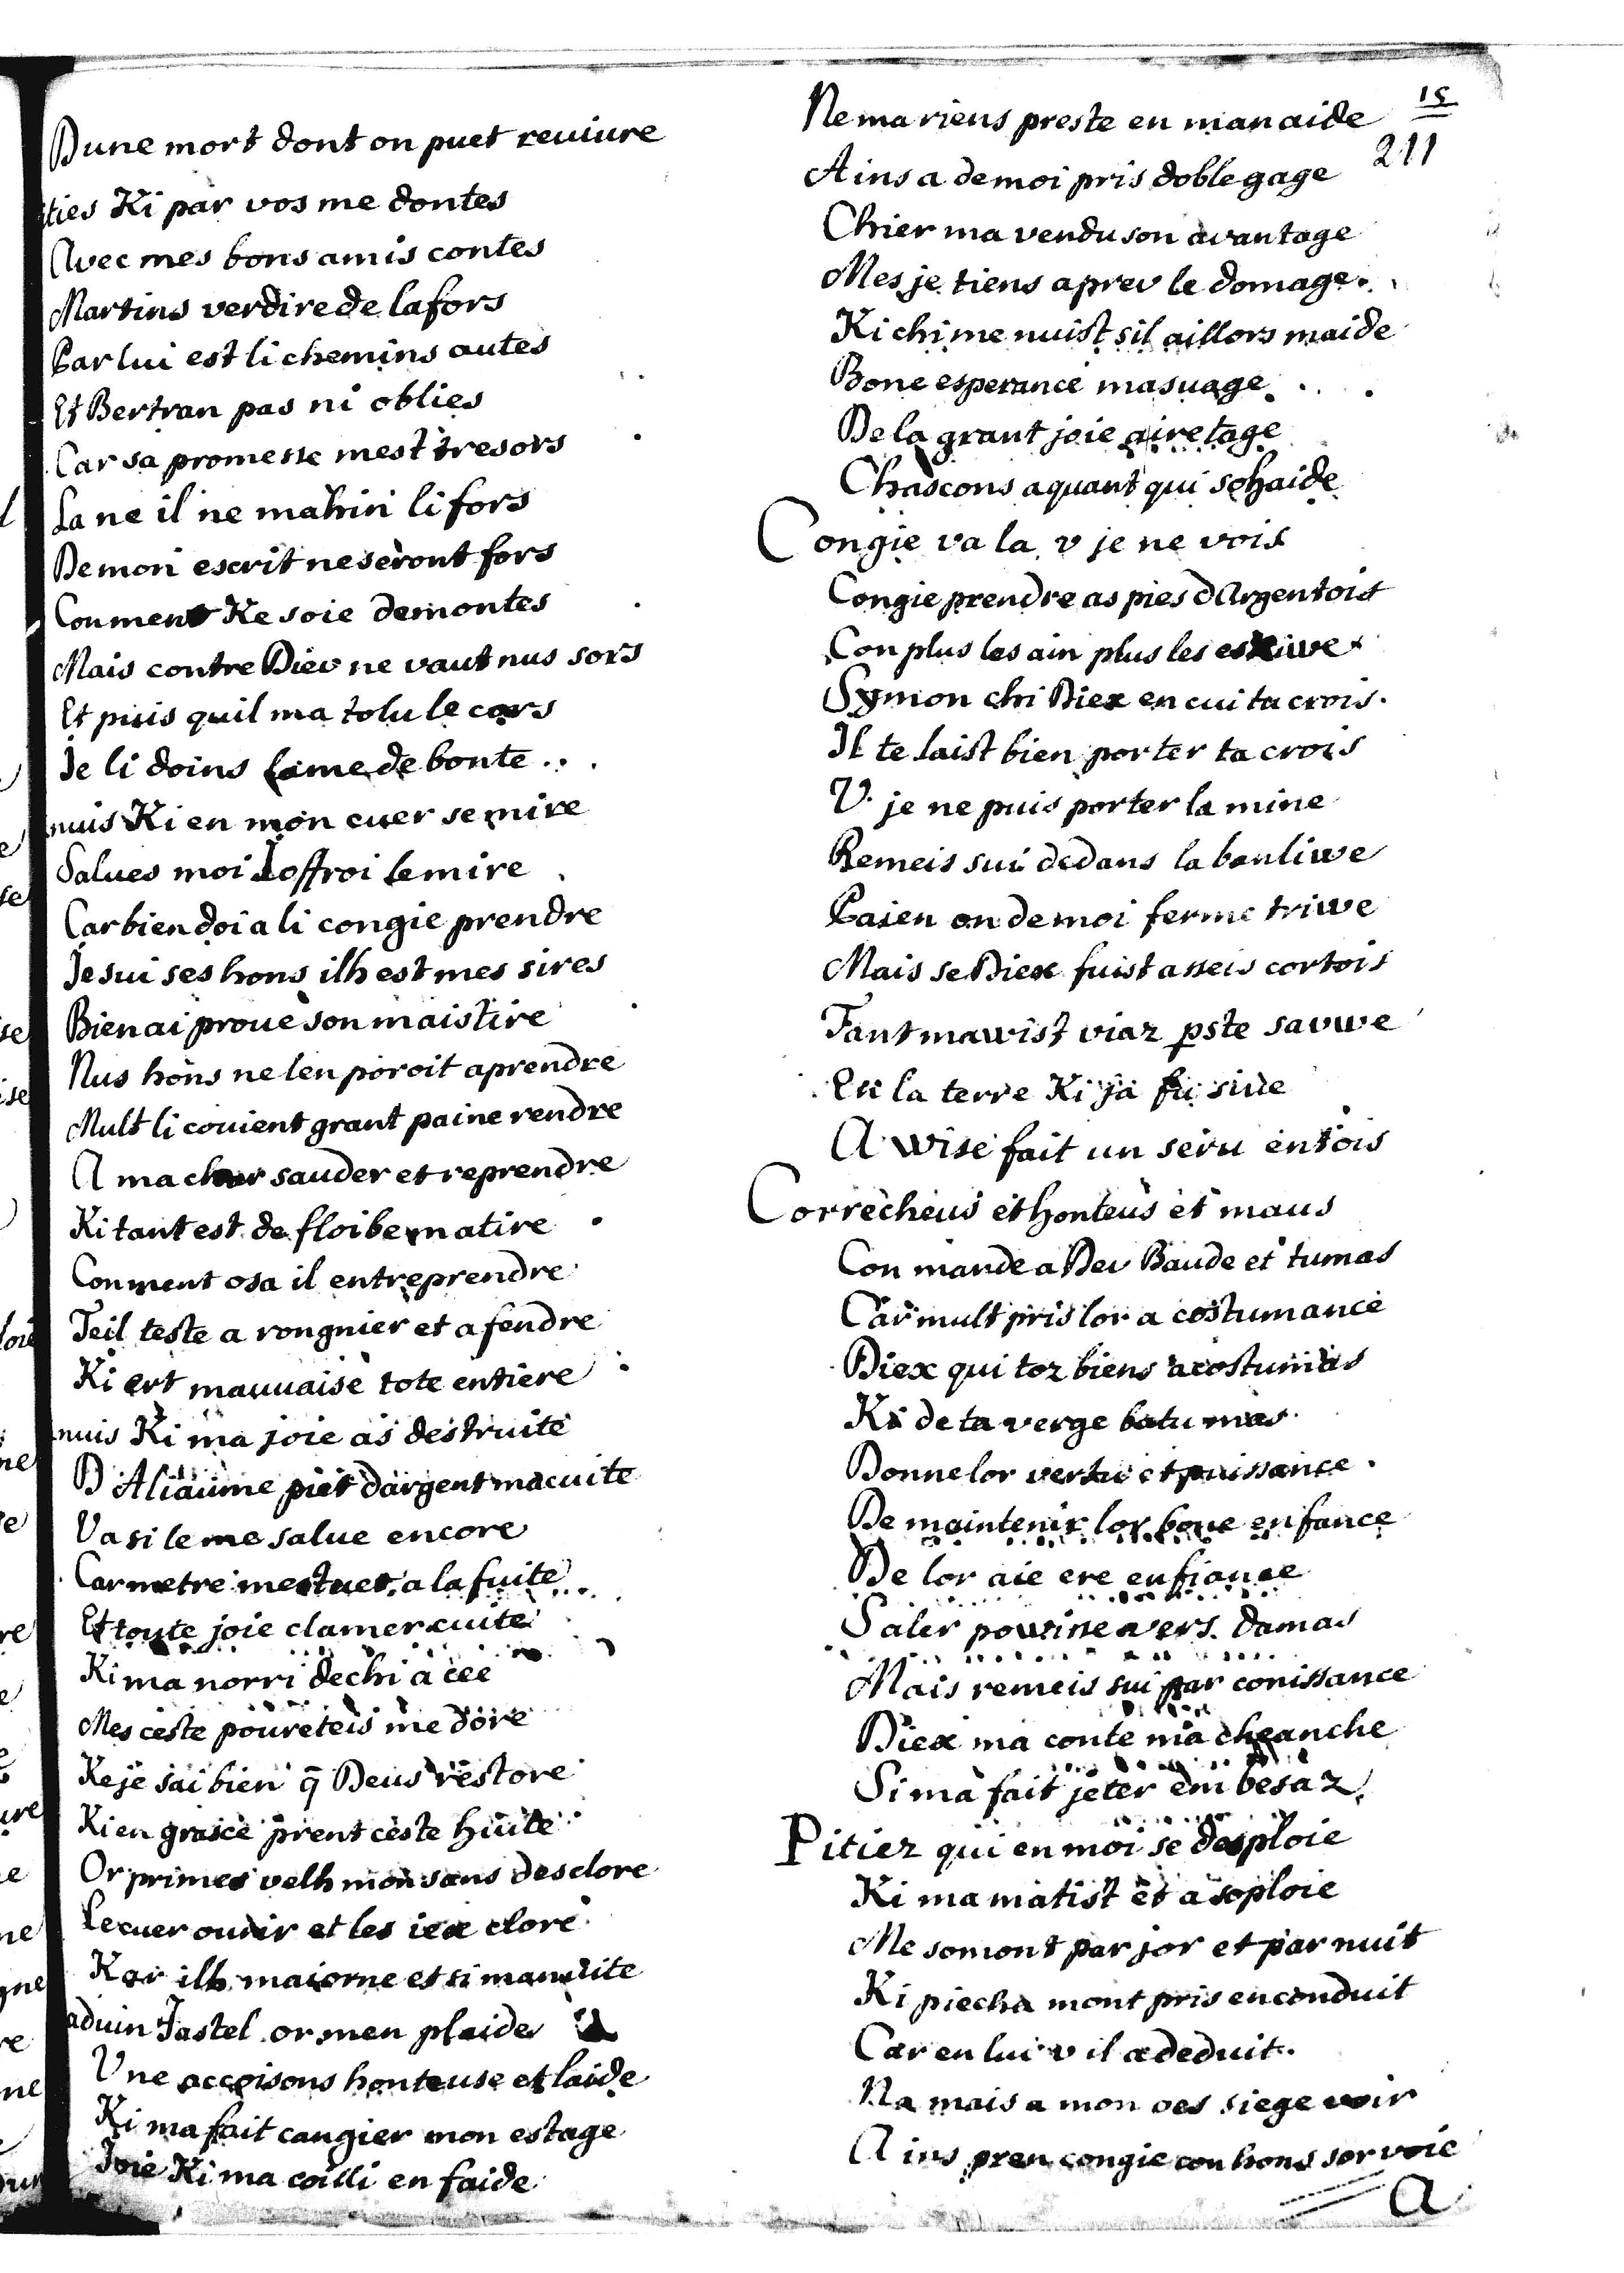 Dune mort dont on puet reuiure
ties Ki par vos me dontes
Avec mes bons amis contes
Martins verdire de lafors
Par lui est li chemins outes
Et Bertran pas ni oblies
Car sa promesse mest tresors
La ne il ne mahin li fors
De mon escrit ne seront fors
Coument Ke soie demontes
Mais contre Diev ne vaut nus sors
Et puis quil ma tolu le cors
Je li doins lame de bonte
nuis Ki en mon cuer se mire
Salues moi Joffroi le mire
Car bien doi a li congie prendre
Je sui ses hons ilh est mes sires
Bien ai proue son maistire
Nus hons ne len poroit aprendre
Mult li couient grant paine rendre
A ma char sauder et reprendre
Ki tant est de floibe matire
Conment osa il entreprendre
Teil teste a rongnier et a fendre
Ki ert mauuaise tote entiere
nuis Ki ma joie as destruite
D Aliaume piet dargent macuite
Va si le me salue encore
Car metre mestuet a la fuite
Et toute joie clamer cuite
Ki ma norri dechi a cee
Mes ceste poureteis me dore
Ke je sai bien q̄ Deus restore
Ki en grasce prent ceste huite
Or primes velh mon sens desclore
Le cuer ouurir et les iex clore
Kar ilh maiorne et si manuite
aduin Fastel or men plaide
Vne occoisons honteuse et laide
Ki ma fait cangier mon estage
Joie Ki ma coilli en faide
15
211
Ne ma riens preste en manaide
Ains a de moi pris doble gage
Chier ma vendu son avantage
Mes je tiens a prev le domage
Ki chi me nuist sil aillors maide
Bone esperance masuage
De la grant joie airetage
Chascons a quant qui sohaide
Congie va la v je ne vois
Congie prendre as pies dArgentois
Con plus les ain plus les eskiwe
Symon chi Diex en cui tu crois
Il te laist bien porter ta crois
V. je ne puis porter la mine
Remeis sui dedans la banliwe
Paien on de moi ferme triwe
Mais se Diex fuist asseis cortois
Tant mawist viaz pste sauwe
En la terre Ki ja fu siue
A wise fait un seru entois
Correcheus et honteus et maus
Con mande a Dev Baude et tumas
Car mult pris lor a costumance
Diex qui toz biens acostumas
Ki de ta verge batu mas
Donne lor vertu et puissance
De maintenir lor bone enfance
De lor aie ere en fiance
Saler powisse vers damas
Mais remeis sui par conissance
Diex ma conte ma cheanche
Si ma fait jeter em besaz
Pitiez qui en moi se desploie
Ki ma matist et asoploie
Me somont par jor et par nuit
Ki piecha mont pris en conduit
Car en lui v il a deduit
Na mais a mon oes siege voir
Ains pren congie con hons sor voie
a